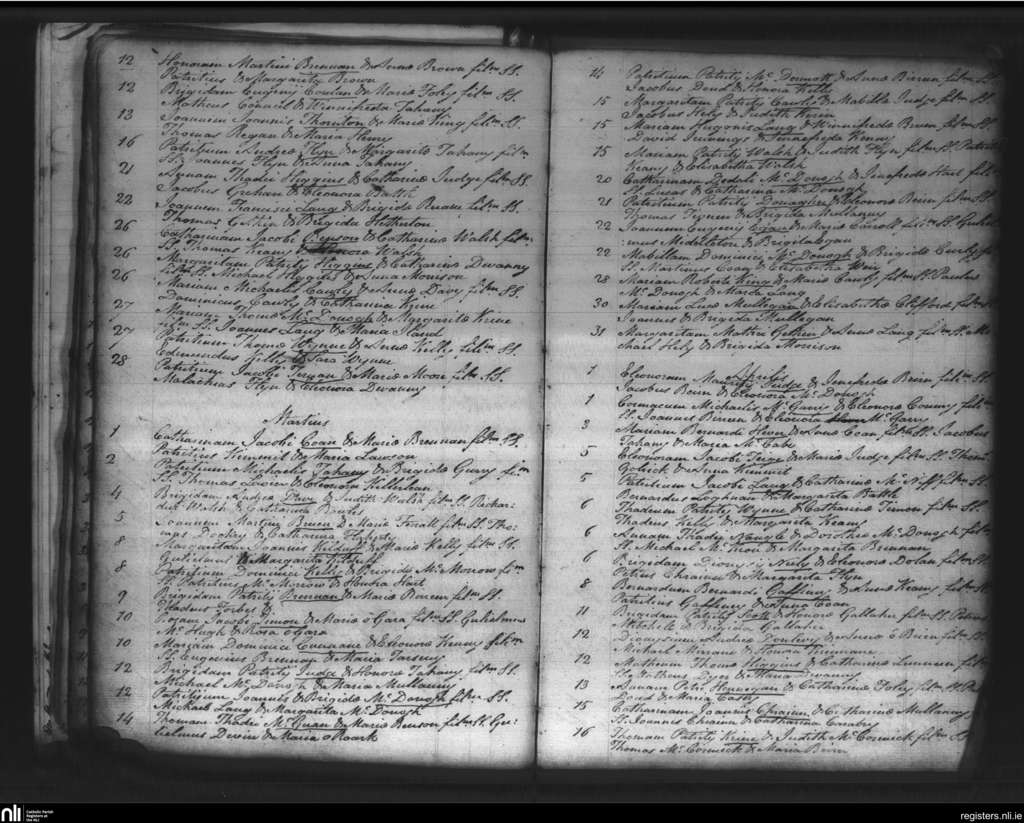 12 Honoram Martini Brennan & Anna Brown fil:m SS.
Patritius & Margarita Brown
12 Brigidam Eugenij Conlan & Maria Foley fil:m SS.
Matheus Council & Winnifreda Tahany
13 Joannem Joannis Thornton & Maria King fil:m SS.
Thomas Regan & Maria Henry
16 Patritium Andrea Flyn & Margarita Tahany fil:m
SS. Joannes Flyn & Anna Tahany
21 Annam Thadei Higgins & Catharina Judge fil:m SS.
Jacobus Graham & Eleonora Battle
22 Joannem Francisci Lang & Brigida Ruane fil:m SS.
Thomas & Brigida Hetherton
26 Catharinam Jacobi Benson & Catharina Walsh fil:m
SS. Thomas Keany & Honora Walsh
26 Margaritam Patritij Higgins & Catharina Dwanny
fil:m SS. Michael Higgins & Anna Morison
26 Mariam Michaelis Cawly & Anna Davy fil:m SS.
Dominicus Cawly & Catharina Krine
27 Mariam Thoma Mc Donogh & Margarita Krine
fil:m SS. Joannes Lang & Maria Iland
27 Patritium Thoma Wynne & Anna Kelly fil:m SS.
Edmundus Kelly & Sara Wynne
28 Patritium Jacobi & Maria Moore fil:m SS.
Malachias Flyn & Eleonora Dwanny
Martius
1 Catharinam Jacobi Coan & Maria Brennan fil:m SS.
Patritius Kimmit & Maria Lawson
2 Patritium Michaelis Tahany & Brigida Gury fil:m
SS. Thomas & Eleonora Killilean
4 Brigidam Andrea Davy & Judith Walsh fil:m SS. Richar:
dus Walsh & Catharina
5 Joannem Martini Bruen & Maria Farrall fil:m SS. Tho:
mas Dockry & Catharina Flaherty
8 Margaritam Joannis & Maria Kelly fil:m SS.
Gulielmus & Margarita
8 Patritium Dominici Kelly & Brigida Mc Morrow fil:m
SS. Patritius Mc Morrow & Honora Hart
9 Brigidam Patritij Brennan & Maria Birren fil:m SS.
Thadeus Forbes &
10 Rosam Jacobi Timon & Maria o Gara fil:m SS. Gulielmus
Mc Hugh & Rosa o Gara
10 Mariam Dominici & Eleonora Keany fil:m
SS. Eugenius Brennan & Maria
12 Brigidam Patritij Judge & Honora Tahany fil:m SS.
Michael Mc Donogh & Maria Mullanny
12 Patritium Joannis & Brigida Mc Donogh fil:m SS.
Michael Lang & Margarita Mc Donogh
14 Thomam Thadei Mc Guan & Maria Benson fil:m SS. Gu:
lielmus & Maria o Roark
14 Patritium Patritij Mc Donnott & Anna Birren fil:m SS.
Jacobus Deud & Honora Kelly
15 Margaritam Patritij Cawly & Mabilla Judge fil:m SS.
Jacobus Hely & Judith
15 Mariam Hugonis Lang & Winnifreda Bruen fil:m SS.
David Jennings & Winnifreda
15 Mariam Patritij Walsh & Judith Flyn fil:m SS. Patritius
Keany & Elisabetha Walsh
20 Catharinam Mc Donogh & Jenefreda Hart fil:m
SS. Lucas & Catharina Mc Donogh
21 Patritium Patritij Donaghey & Eleonora Birn fil:m SS.
Thomas & Brigida Mullanny
22 Joannem Eugenij Egan & Maria Carroll fil:m SS. Guliel:
:mus Middleton & Brigida Egan
22 Mabillam Dominici Mc Donogh & Brigida Cawly fil:m
SS. Martinus Coan & Elisabetha
28 Mariam Roberti King & Maria Cawly fil:m SS. Paulus
Mc Donogh & Maria Lang
30 Mariam Luca Mullegan & Elisabetha Clifford fil:m SS.
Joannes & Brigida Mullegan
31 Margaritam Mathei Gethin & Anna Lang fil:m SS. Mi:
chael Hely & Brigida Morrison
Aprilis
1 Eleonoram Mauritij Judge & Jenefreda Birn fil:m SS.
Jacobus Birn & Eleonora Mc Donogh
1 Cormacum Michaelis Mc Garry & Eleonora Conny fil:m
SS. Joannes Birren & Eleonora Mc Garry
3 Mariam Bernardi & Anna Coan fil:m SS. Jacobus
Tahany & Maria Mc Cabe
5 Eleonoram Jacobi Teige & Maria Judge fil:m SS. Thomas
Golrick & Anna Kimmit
5 Patritium Jacobi Lang & Catharina Mc Niff fil:m SS.
Bernardus Loghnan & Margarita Battle
6 Thadeum Patritij Wynne & Catharina Timon fil:m SS.
Thadeus Kelly & Margarita Keany
6 Annam Thady Nangle & Dorothea Mc Donogh fil:m
SS. Michael Mc Trou & Margarita Brennan
6 Brigidam Dionysij Neely & Eleonora Dolan fil:m SS.
Petrus Chraim & Margarita Flyn
8 Bernardum Bernardi Gaffeny & Anna Keany fil:m SS.
Patritius Gaffeny & Anna Coan
11 Brigidam Patritij Scott & Honora Gallaher fil:m SS. Petrus
Mitchell & Brigida Gallaher
12 Dionysium Andrea Dunlevy & Anna O Brien fil:m SS.
Michael Mirrane & Honora
12 Matheum Thoma Higgins & Catharina Linneen fil:m
SS. Matheus Dyer & Maria Dwanny
13 Annam Petri Hennegan & Catharina Foley fil:m SS.
David & Maria Casey
15 Catharinam Joannis Chraim & Catharina Mullanny
SS. Joannis Chraim & Catharina
16 Thomam Patritij Krine & Judith Mc Cormick fil:m SS.
Thomas Mc Cormick & Maria Birn
nli
Catholic Parish
Registers at
the NLI
registers.nli.ie